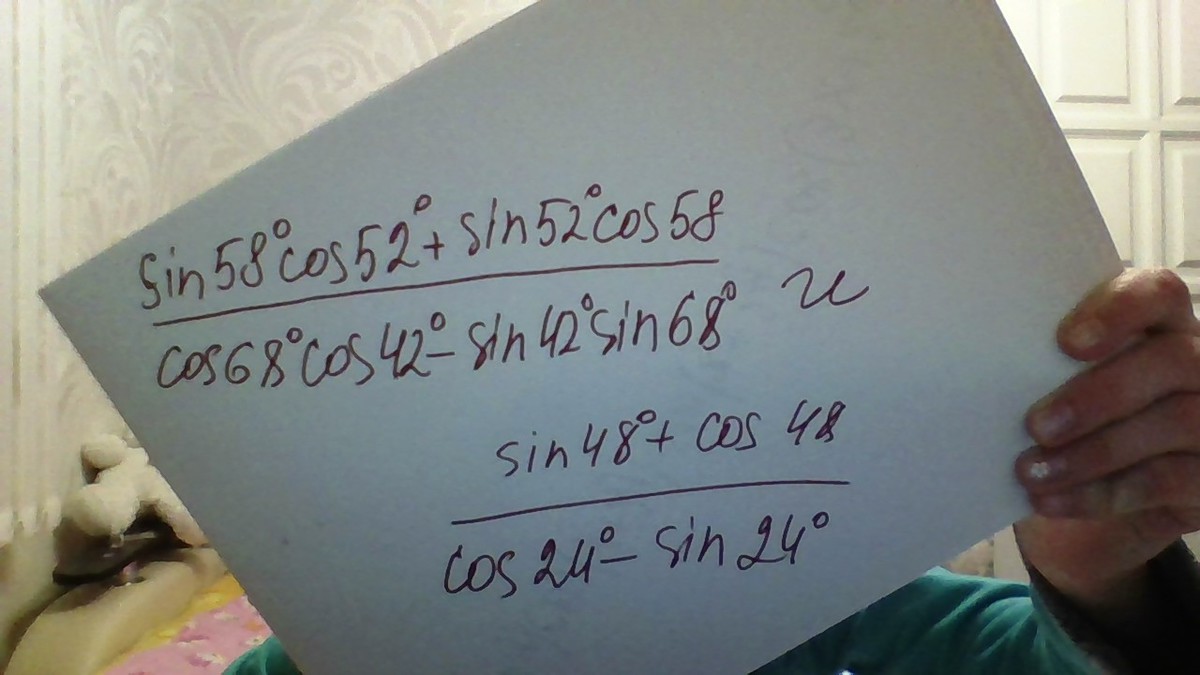 sin58°cos52°+ sin52°cos58
cos68°cos42°- sin42°sin68° и
sin48°+ cos 48
cos24°- sin24°